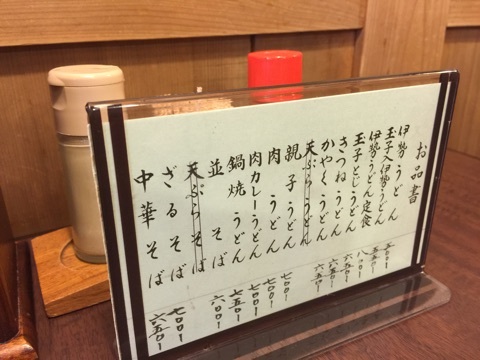 お品書
伊勢うどん 五〇〇
玉子入伊勢うどん 五五〇
伊勢うどん定食 八〇〇
玉子とじうどん 六五〇
きつねうどん
かやくうどん 六五〇
天ぷらうどん
親子うどん 七〇〇
肉うどん 七〇〇
肉カレーうどん 七〇〇
鍋焼うどん 七五〇
並そば 六〇〇
天ぷらそば
ざるそば 七〇〇
中華そば 六五〇